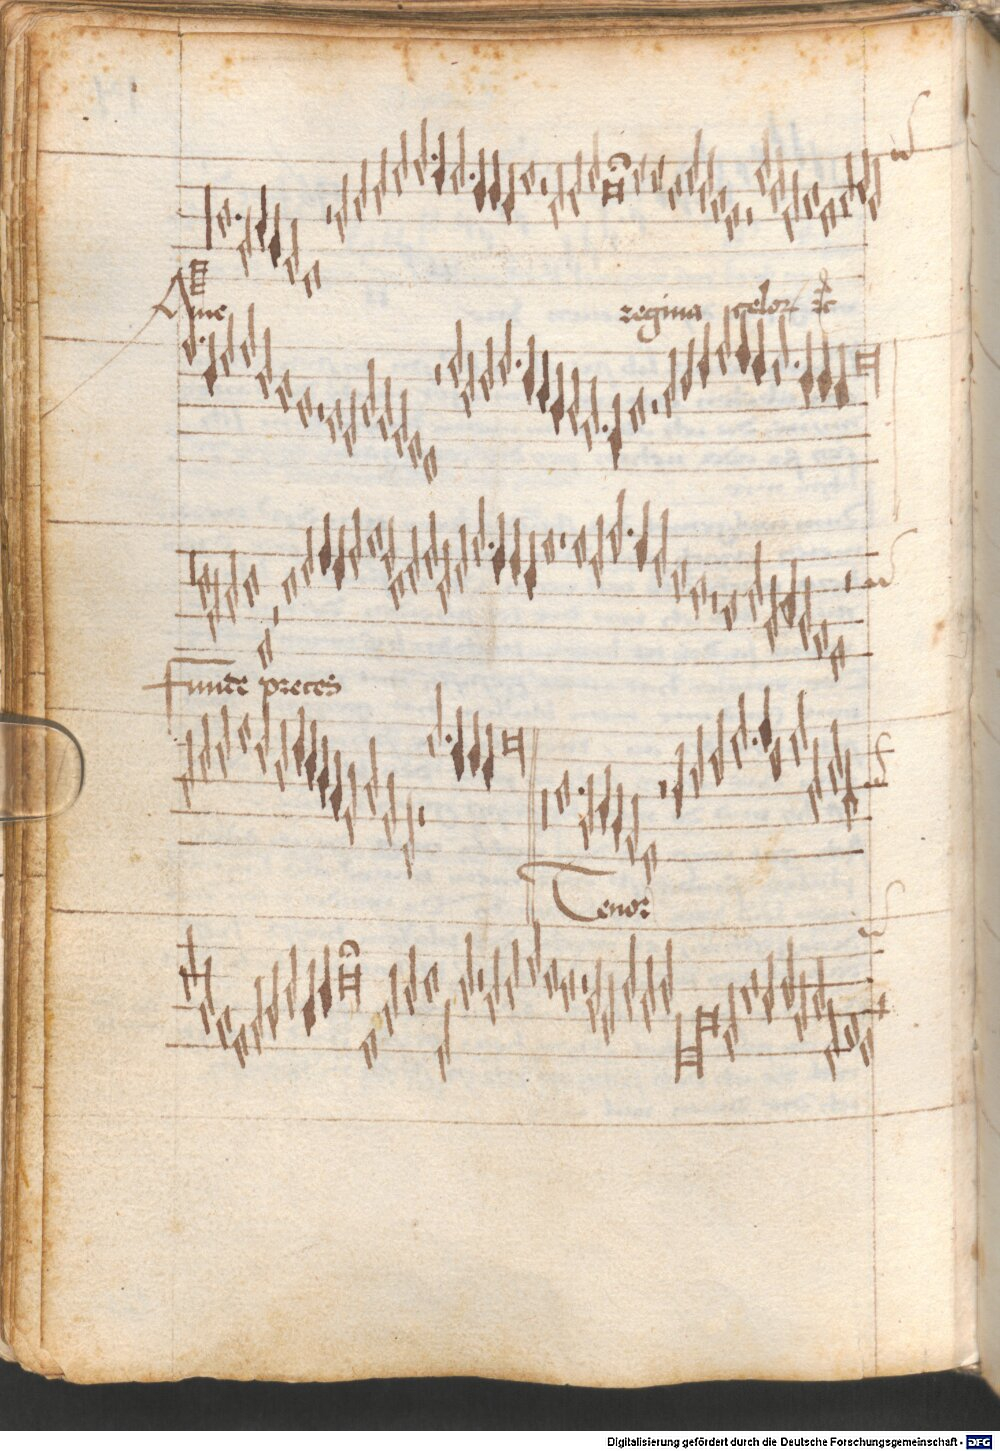 Ave regina celor
Funde preces
Tenor
Digitalisierung gefördert durch die Deutsche Forschungsgemeinschaft - DFG